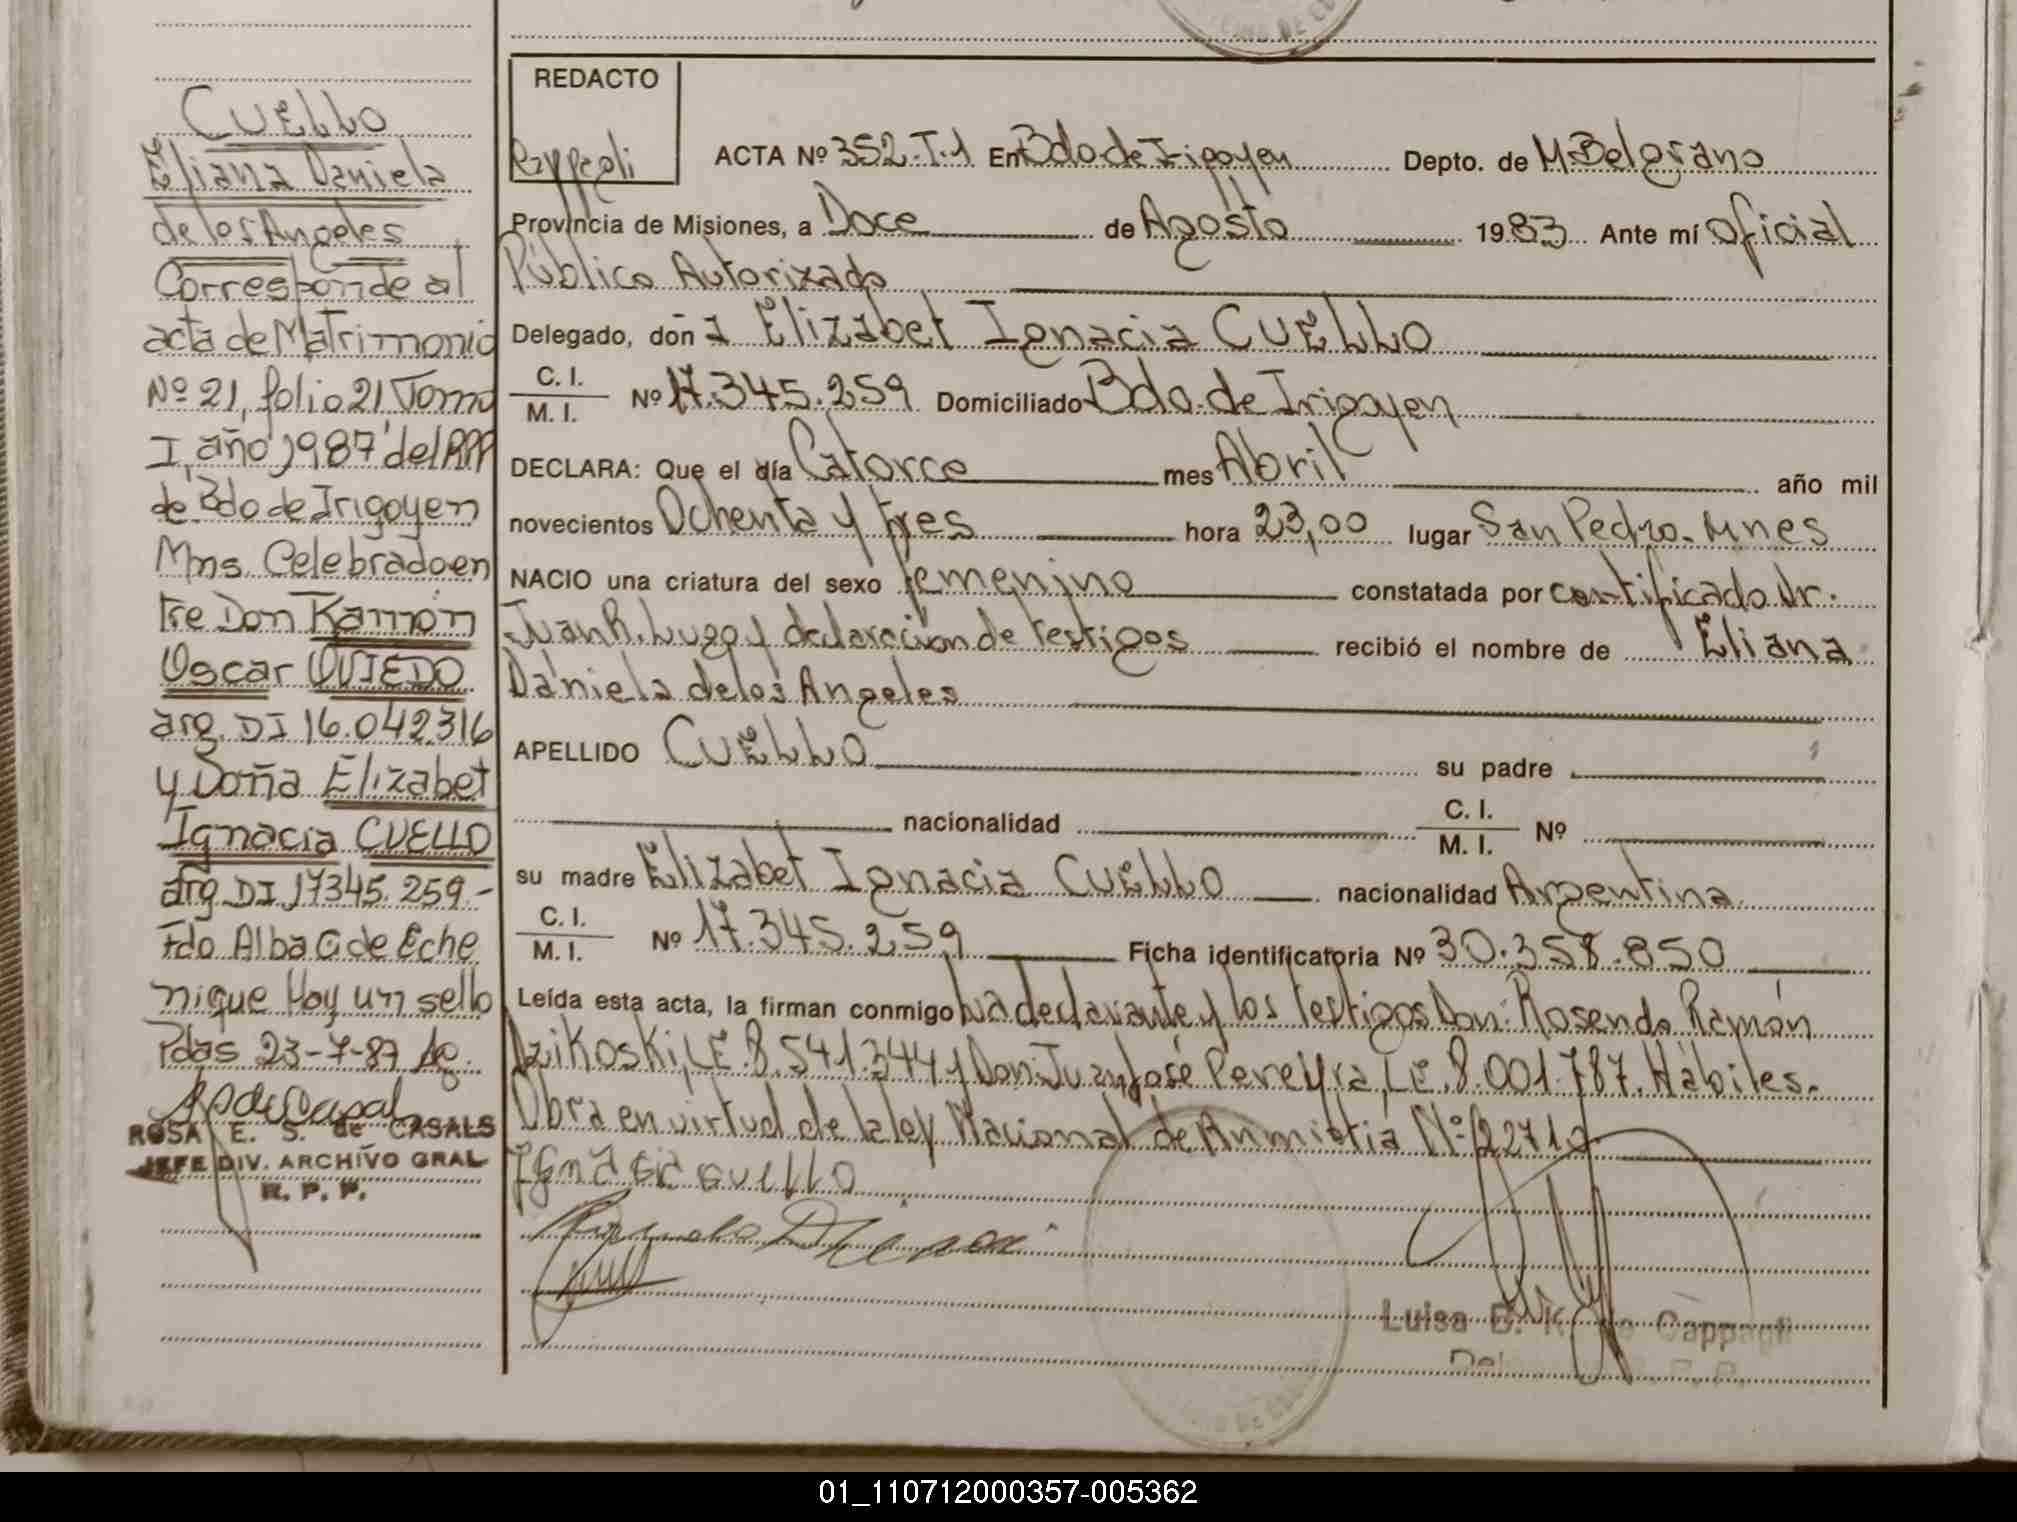 CUELLO
Eliana Daniela
de los Angeles
Corresponde al
acta de Matrimonio
Nº 21, folio 21 Tomo
I, año 1987 del RPP
de Bdo de Irigoyen
Mns. Celebrado en
tre Don Ramón
Oscar OVIEDO
arg. DI 16.042.316
y Doña Elizabet
Ignacia CUELLO
arg DI 17345.259.-
Fdo Alba G de Eche
nique Hay un sello
Pdas 23-7-87
ROSA E. S. de CASALS
JEFE DIV. ARCHIVO GRAL
R. P. P.
REDACTO
ACTA Nº 352-T-1 En Bdo. de Irigoyen Depto. de M. Belgrano
Provincia de Misiones, a Doce de Agosto 1983 Ante mí Oficial
Público Autorizado
Delegado, doña Elizabet Ignacia CUELLO
C. I.
M. I. Nº 17.345.259 Domiciliado Bdo. de Irigoyen
DECLARA: Que el día Catorce mes Abril año mil
novecientos Ochenta y tres hora 23,00 lugar San Pedro. Mnes
NACIO una criatura del sexo femenino constatada por certificado Dr.
Juan R. Lugo y declaración de testigos recibió el nombre de Eliana
Daniela de los Angeles
APELLIDO CUELLO su padre
nacionalidad C. I.
M. I. Nº
su madre Elizabet Ignacia CUELLO nacionalidad Argentina
C. I.
M. I. Nº 17.345.259 Ficha identificatoria Nº 30.358.850
Leída esta acta, la firman conmigo La declarante y los testigos Don: Rosendo Ramón
Dzikoski, LE. 8.541.344 y Don: Juan José Pereyra, LE. 8.001.787. Hábiles.
Obra en virtud de la ley Nacional de Anmistia Nº 22710
Ignacia cuello
Luisa E. Cappagli
01_110712000357-005362